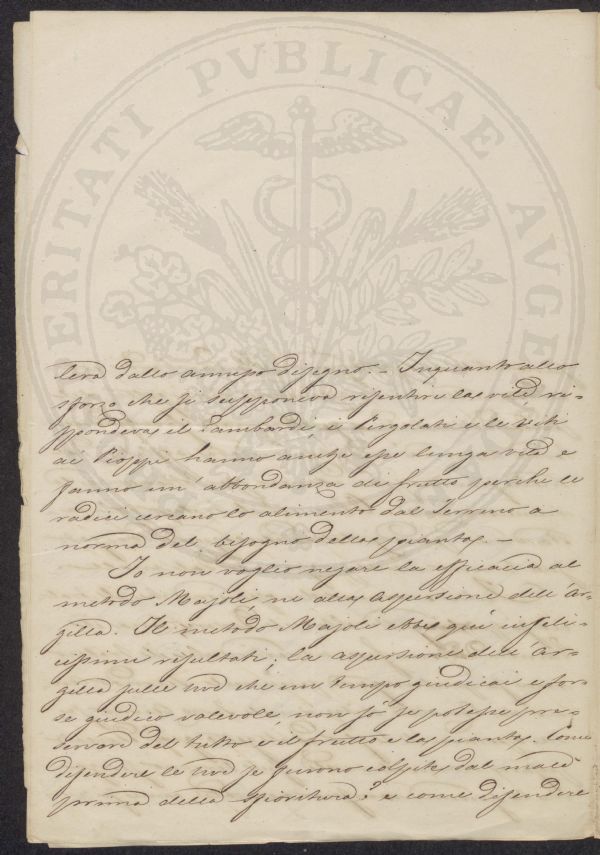 PROSPERITATI PVBLICAE AVGENDAE
lerà dallo annesso disegno. – Inquanto allo
sforzo che si supponeva risentire la vite ri-
spondeva il Lambardi, i Pergolati e le viti
ai Pioppi hanno anche esse lunga vita e
fanno un' abbondanza di frutto perche le
radici cercano lo alimento dal terreno a
norma del bisogno della pianta. –
Io non voglio negare la efficacia al
metodo Majoli ne alla aspersione dell' Ar-
gilla. Il metodo Majoli ebbe quì infeli-
cissimi resultati; la aspersione dell' Ar-
gilla sulle uve che un tempo giudicai e for-
se giudico valevole non sò se potesse pre-
servare del tutto e il frutto e la pianta. Come
difendere le uve se furono colpite dal male
prima della fioritura? e come difendere